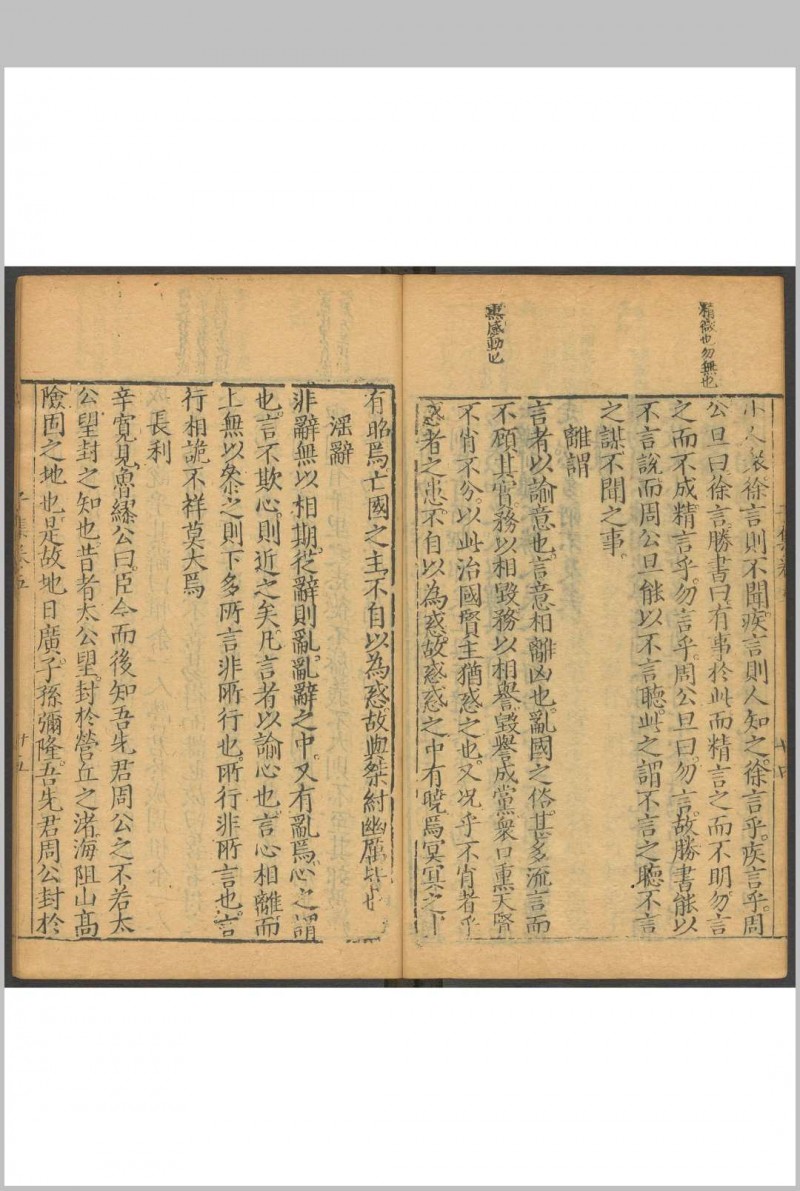 精微也勿無也
熏感動也
小人衆徐言則不聞疾言則人知之徐言乎疾言乎周
公旦曰徐言勝書曰有事於此而精言之而不明勿言
之而不成精言乎勿言乎周公旦曰勿言故勝書能以
不言說而周公旦能以不言聽此之謂不言之聽不言
之謀不聞之事
離謂
言者以諭意也言意相離凶也亂國之俗甚多流言而
不顧其實務以相毀務以相譽毀譽成黨衆口熏天賢
不肖不分以此治國賢主猶惑之也又況乎不肖者乎
惑者之患不自以為惑故惑惑之中有曉焉冥冥之中
有昭焉亡國之主不自以為惑故與桀紂幽厲皆也
淫辭
非辭無以相期從辭則亂亂辭之中又有亂焉心之謂
也言不欺心則近之矣凡言者以諭心也言心相離而
上無以參之則下多所言非所行也所行非所言也言
行相詭不祥莫大焉
長利
辛寬見魯繆公曰臣今而後知吾先君周公之不若太
公望封之知也昔者太公望封於營丘之渚海阻山高
險固之地也是故地日廣子孫彌隆吾先君周公封於
子集卷五
廿五